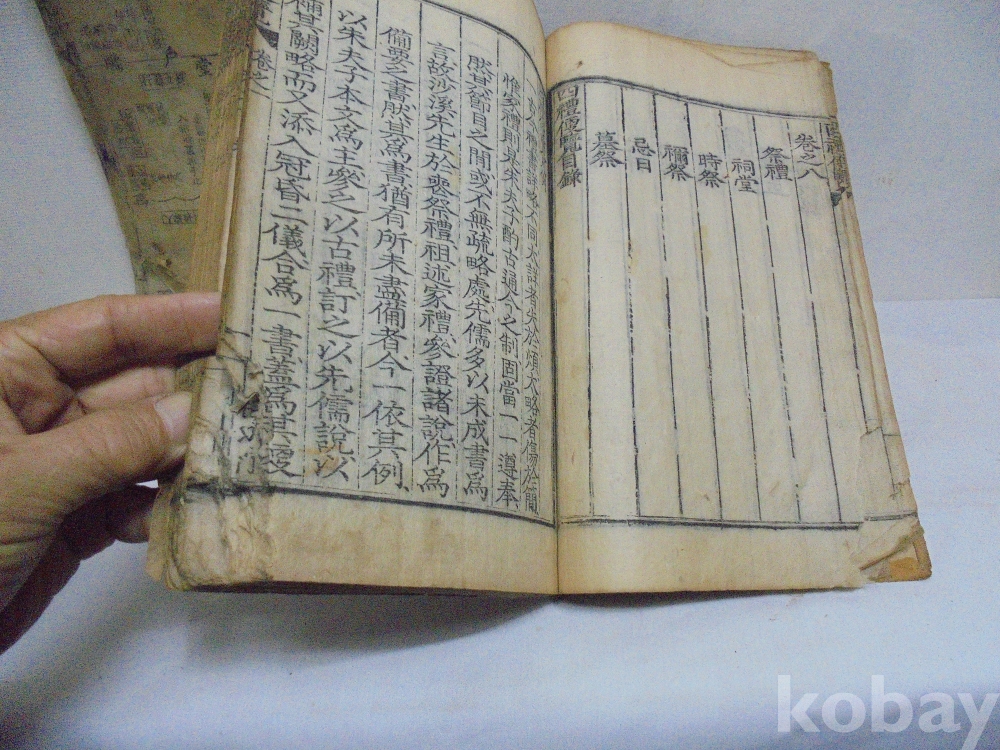 卷之八
祭禮
祠堂
時祭
禰祭
忌日
墓祭
四禮便覽目錄
惟家禮則是朱夫子酌古通今之制固當一一遵奉
然其節目之間或不無疏略處先儒多以未成書爲
言故沙溪先生於喪祭禮祖述家禮參證諸說作爲
備要之書然其爲書猶有所未盡備者今一依其例
以朱夫子本文爲主參之以古禮訂之以先儒說以
補其闕略而又添入冠昏二儀合爲一書蓋爲其
卷之
堂
kobay